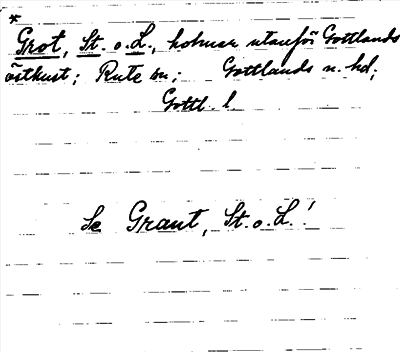 *
Grot, St. o. L., holmar utanför Gottlands
östkust; Rute sn; Gottlands n. hd;
Gottl. l.
Se Graut, St. o. L.!